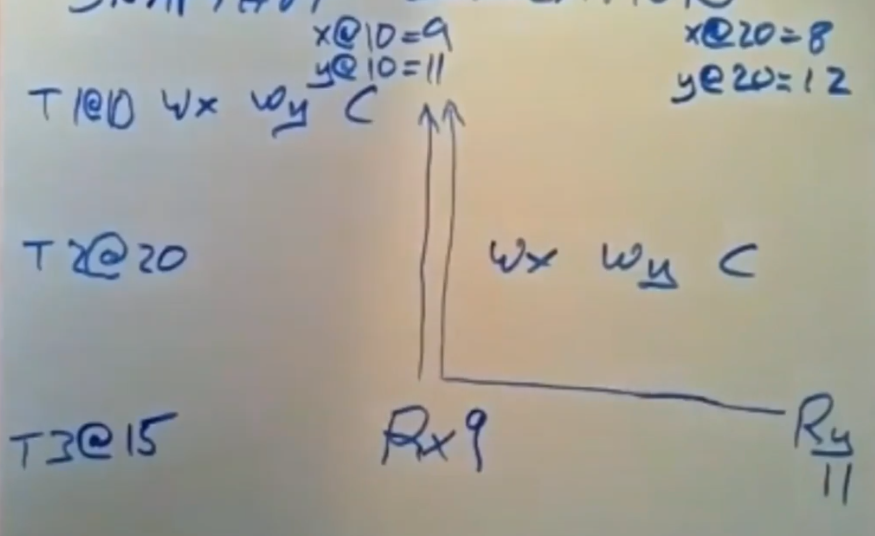 x@10=9 x@20=8
y@10=11 y@20=12
T1@10 Wx Wy C
T2@20 Wx Wy C
T3@15 Rx9 Ry
11